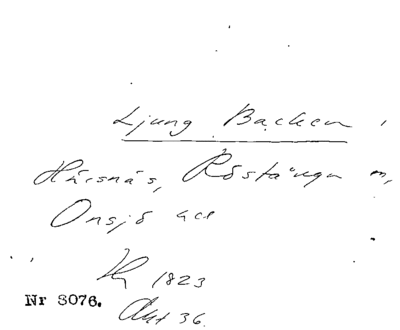 Ljung Backen
Härsnäs, Röstånga
Onsjö
1823
Nr 3076.
36.